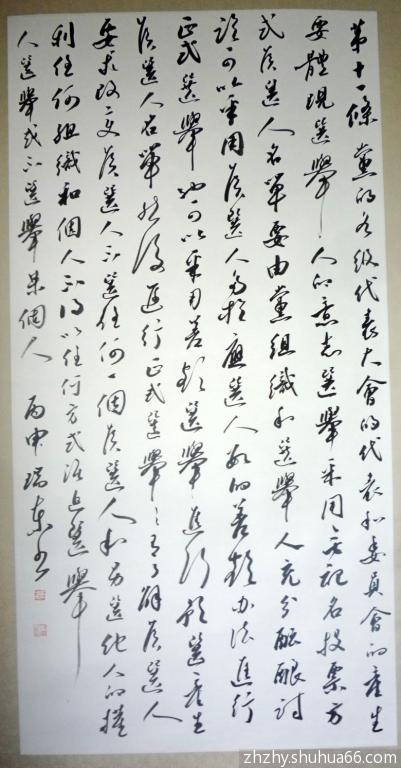 第十一條黨的各級代表大會的代表和委員會的產生
要體現選舉人的意志選舉采用無記名投票方
式候選人名單要由黨組織和選舉人充分醞釀討
論可以采用候選人多於應選人數的差額办法進行
正式選舉也可以采用差額選舉進行預選產生
候選人名單然後進行正式選舉選舉人有了解候選人
要求改變候選人不選任何一個候選人和另選他人的權
利任何組織和個人不得以任何方式強迫選舉
人選舉或不選舉某個人丙申瑞東书
zhzhy.shuhua66.com